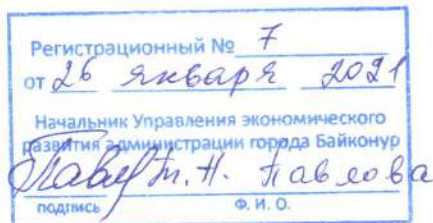 Регистрационный № 7
от 26 января 2021
Начальник Управления экономического
развития администрации города Байконур
Т. Н. Павлова
подпись Ф. И. О.